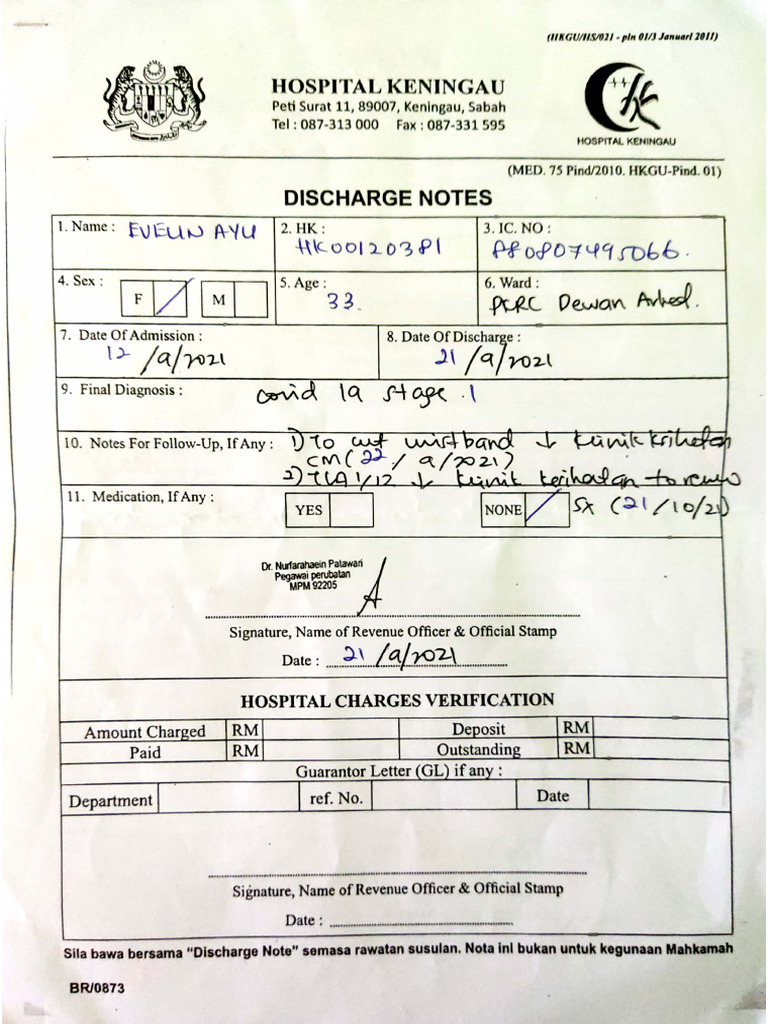 (HKGU/HS/021 - pin 01/3 Januari 2011)
HOSPITAL KENINGAU
Peti Surat 11, 89007, Keningau, Sabah
Tel : 087-313 000 Fax : 087-331 595
HOSPITAL KENINGAU
(MED. 75 Pind/2010. HKGU-Pind. 01)
DISCHARGE NOTES
1. Name : EVELIN AYU 2. HK : HK00120381 3. IC. NO : 880807495066.
4. Sex : F / M 5. Age : 33. 6. Ward : PKRC Dewan
7. Date Of Admission : 12/9/2021 8. Date Of Discharge : 21/9/2021
9. Final Diagnosis : covid 19 stage 1
10. Notes For Follow-Up, If Any : 1) To cut wristband ↓ klinik
CM (22/9/2021)
2) TCA 1/12 ↓ klinik kesihatan to review
11. Medication, If Any : YES NONE / SX (21/10/21)
Dr. Nurfarahaein Palawari
Pegawai perubatan
MPM 92205
Signature, Name of Revenue Officer & Official Stamp
Date : 21/9/2021
HOSPITAL CHARGES VERIFICATION
Amount Charged RM Deposit RM
Paid RM Outstanding RM
Guarantor Letter (GL) if any :
Department ref. No. Date
Signature, Name of Revenue Officer & Official Stamp
Date :
Sila bawa bersama “Discharge Note” semasa rawatan susulan. Nota ini bukan untuk kegunaan Mahkamah
BR/0873